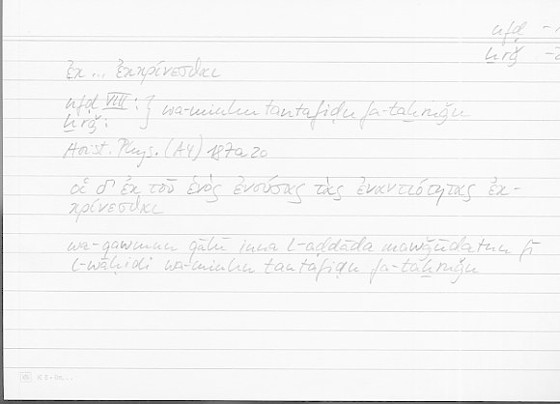 nfḍ -
ḫrǧ -
ἐκ ... ἐκκρίνεσθαι
nfḍ VIII : } wa-minhu tantafiḍu fa-taḫruǧu
ḫrǧ :
Arist. Phys. (A4) 187a20
οἱ δ' ἐκ τοῦ ἑνὸς ἐνούσας τὰς ἐναντιότητας ἐκ-
κρίνεσθαι
wa-qawmun qālū inna l-aḍdāda mawǧūdatun fī
l-wāḥidi wa-minhu tantafiḍu fa-taḫruǧu